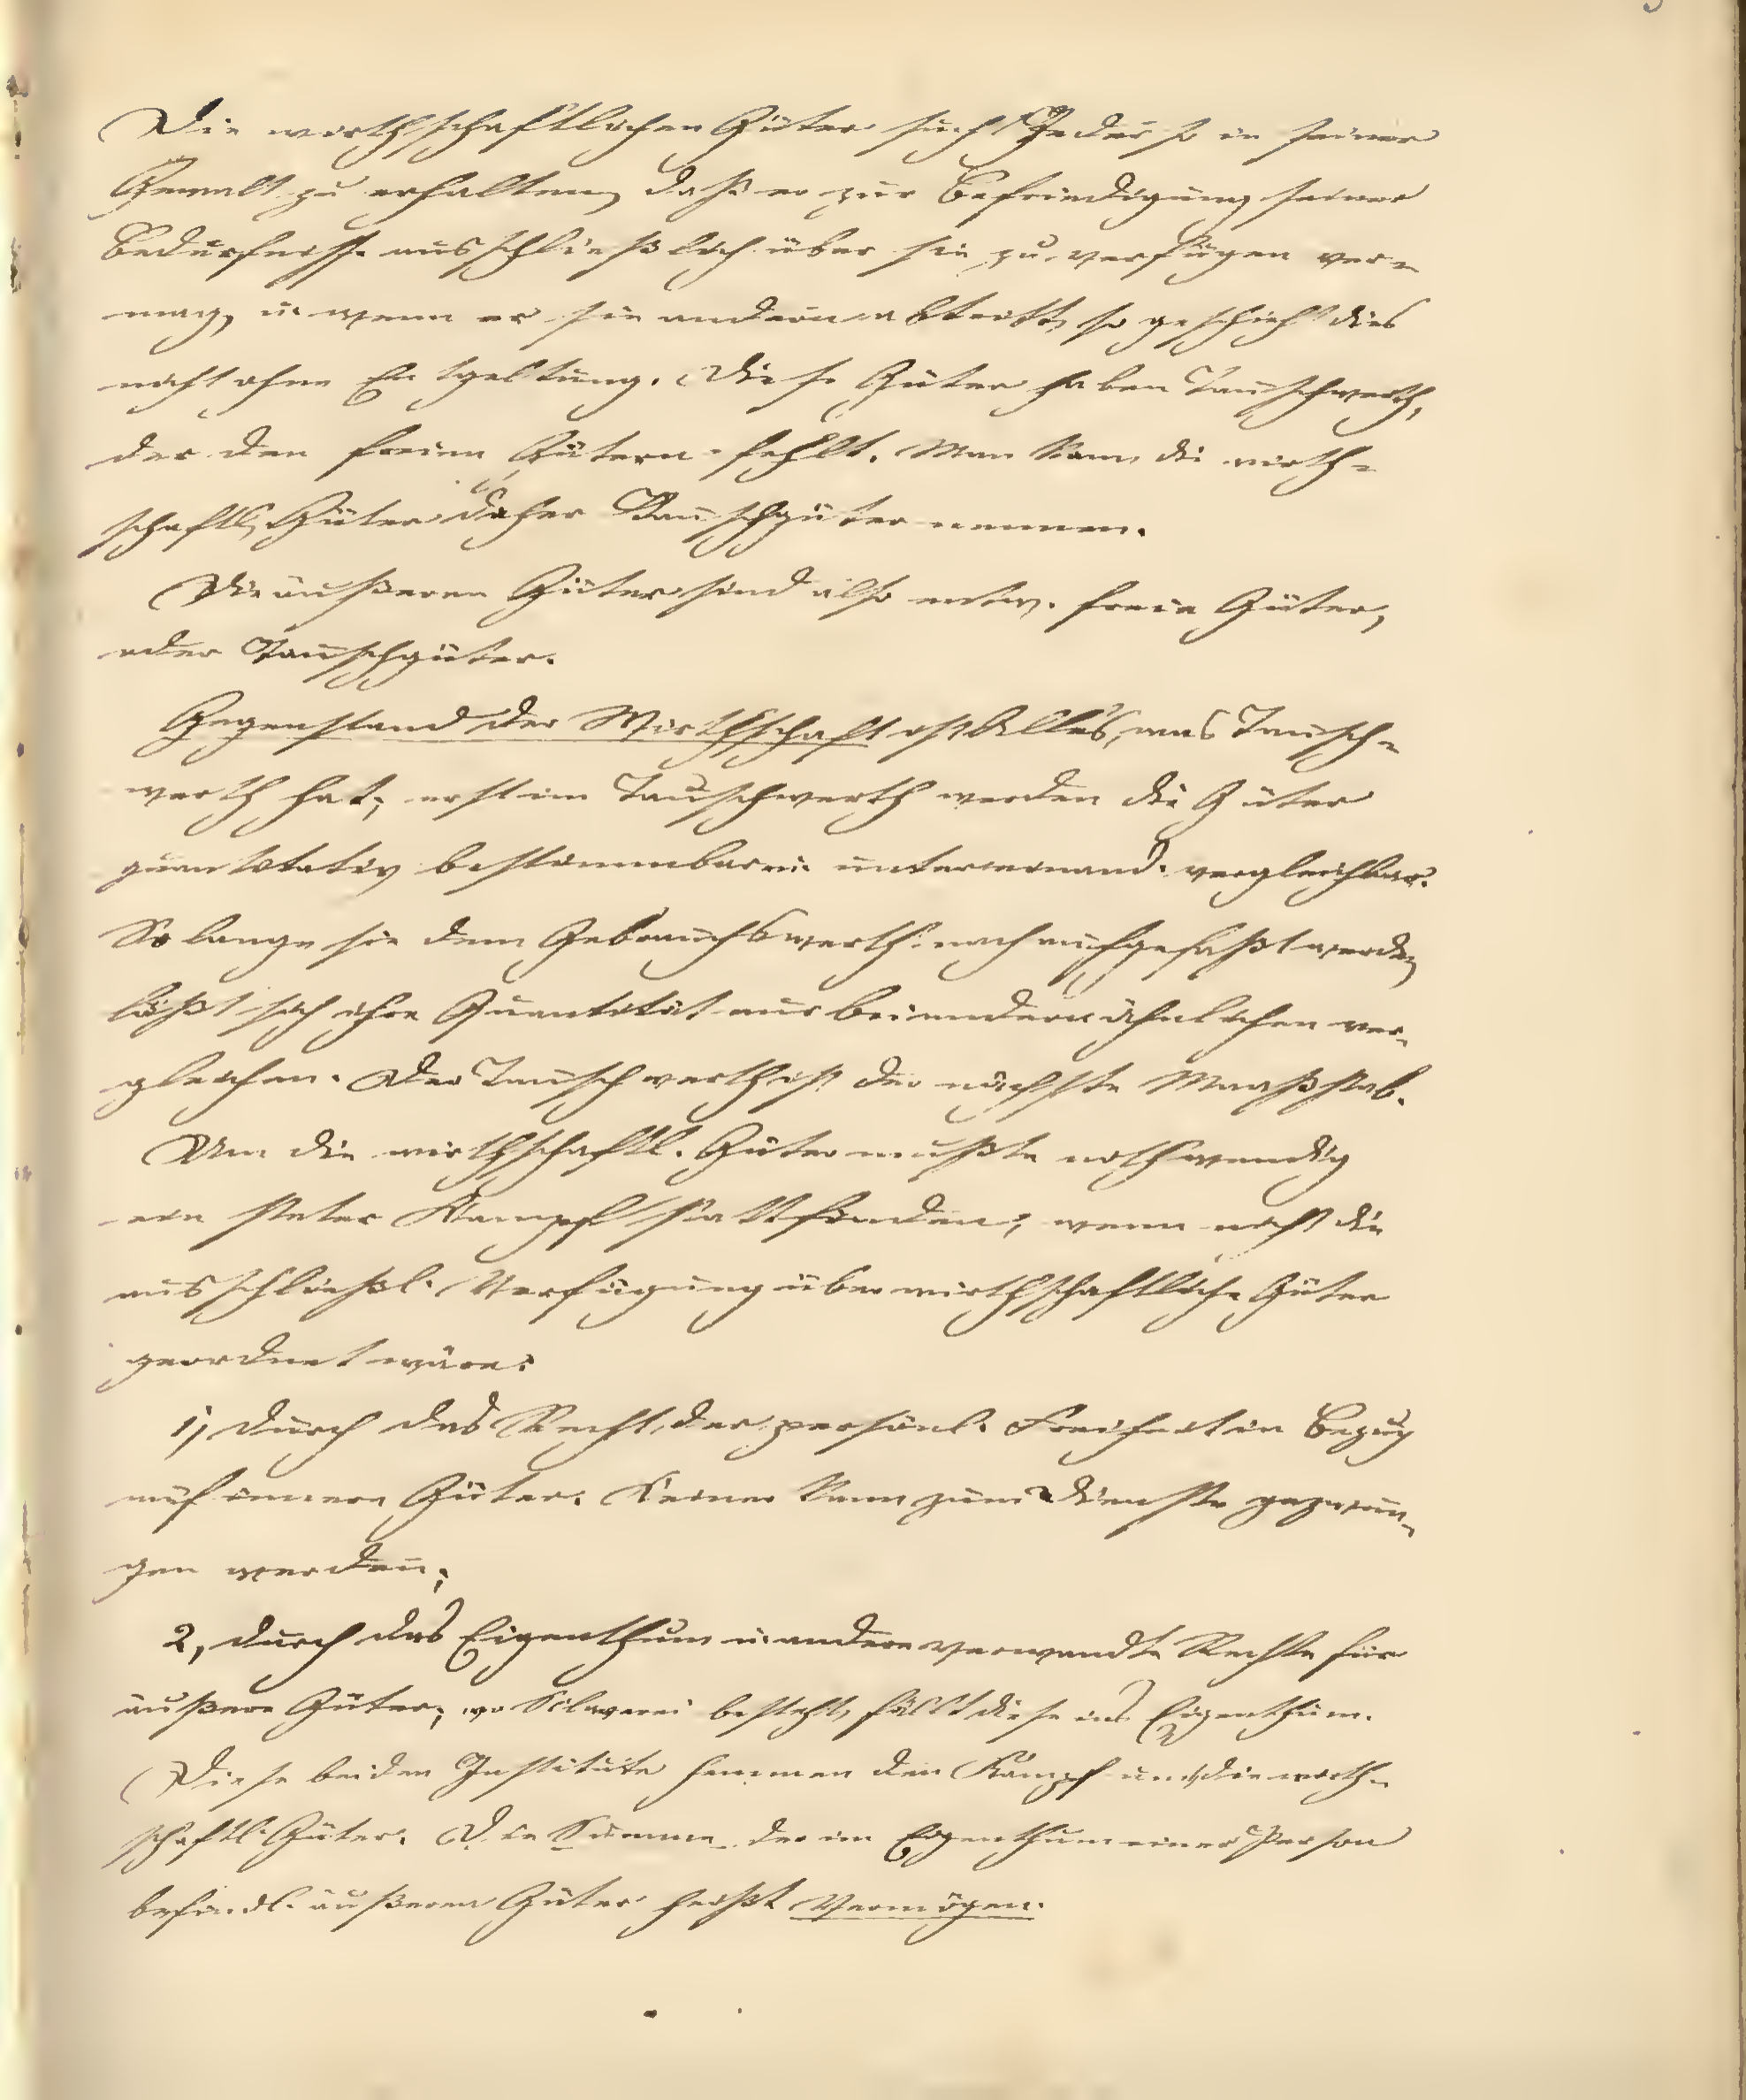 Die wirthschaftlichen Güter sucht Jeder so in seiner
Gewalt zu erhalten, daß er zur Befriedigung seiner
Bedürfnisse ausschließlich über sie zu verfügen ver-
mag, u. wenn er sie andern abtritt, so geschieht dies
nicht ohne Entgeltung. Diese Güter haben Tauschwerth,
der den freien Gütern fehlt. Man kann die wirth-
schaftl. Güter daher Tauschgüter nennen.
Die äußeren Güter sind also entw. freie Güter,
oder Tauschgüter.
Gegenstand der Wirthschaft ist Alles, was Tausch-
werth hat; erst im Tauschwerth werden die Güter
quantitativ bestimmbar u. untereinand. vergleichbar.
So lange sie dem Gebrauchswerth nach aufgefaßt werden
läßt sich ihre Quantität nur bei andern ähnlichen ver-
gleichen. Der Tauschwerth ist der nächste Maaßstab.
Um die wirthschaftl. Güter müßte nothwendig
ein steter Kampf stattfinden, wenn nicht die
ausschließl. Verfügung über wirthschaftliche Güter
geordnet wäre:
1, durch das Recht der persönl. Freiheit in Bezug
auf innere Güter. Keiner kann zum Dienste gezwun-
gen werden;
2, durch das Eigenthum u. andere verwandte Rechte für
äußere Güter; wo Sclaverei besteht, fällt diese ins Eigenthum.
Diese beiden Institute hemmen den Kampf um die wirth-
schaftl. Güter. Die Summe der im Eigenthum einer Person
befindl. äußeren Güter heißt Vermögen.